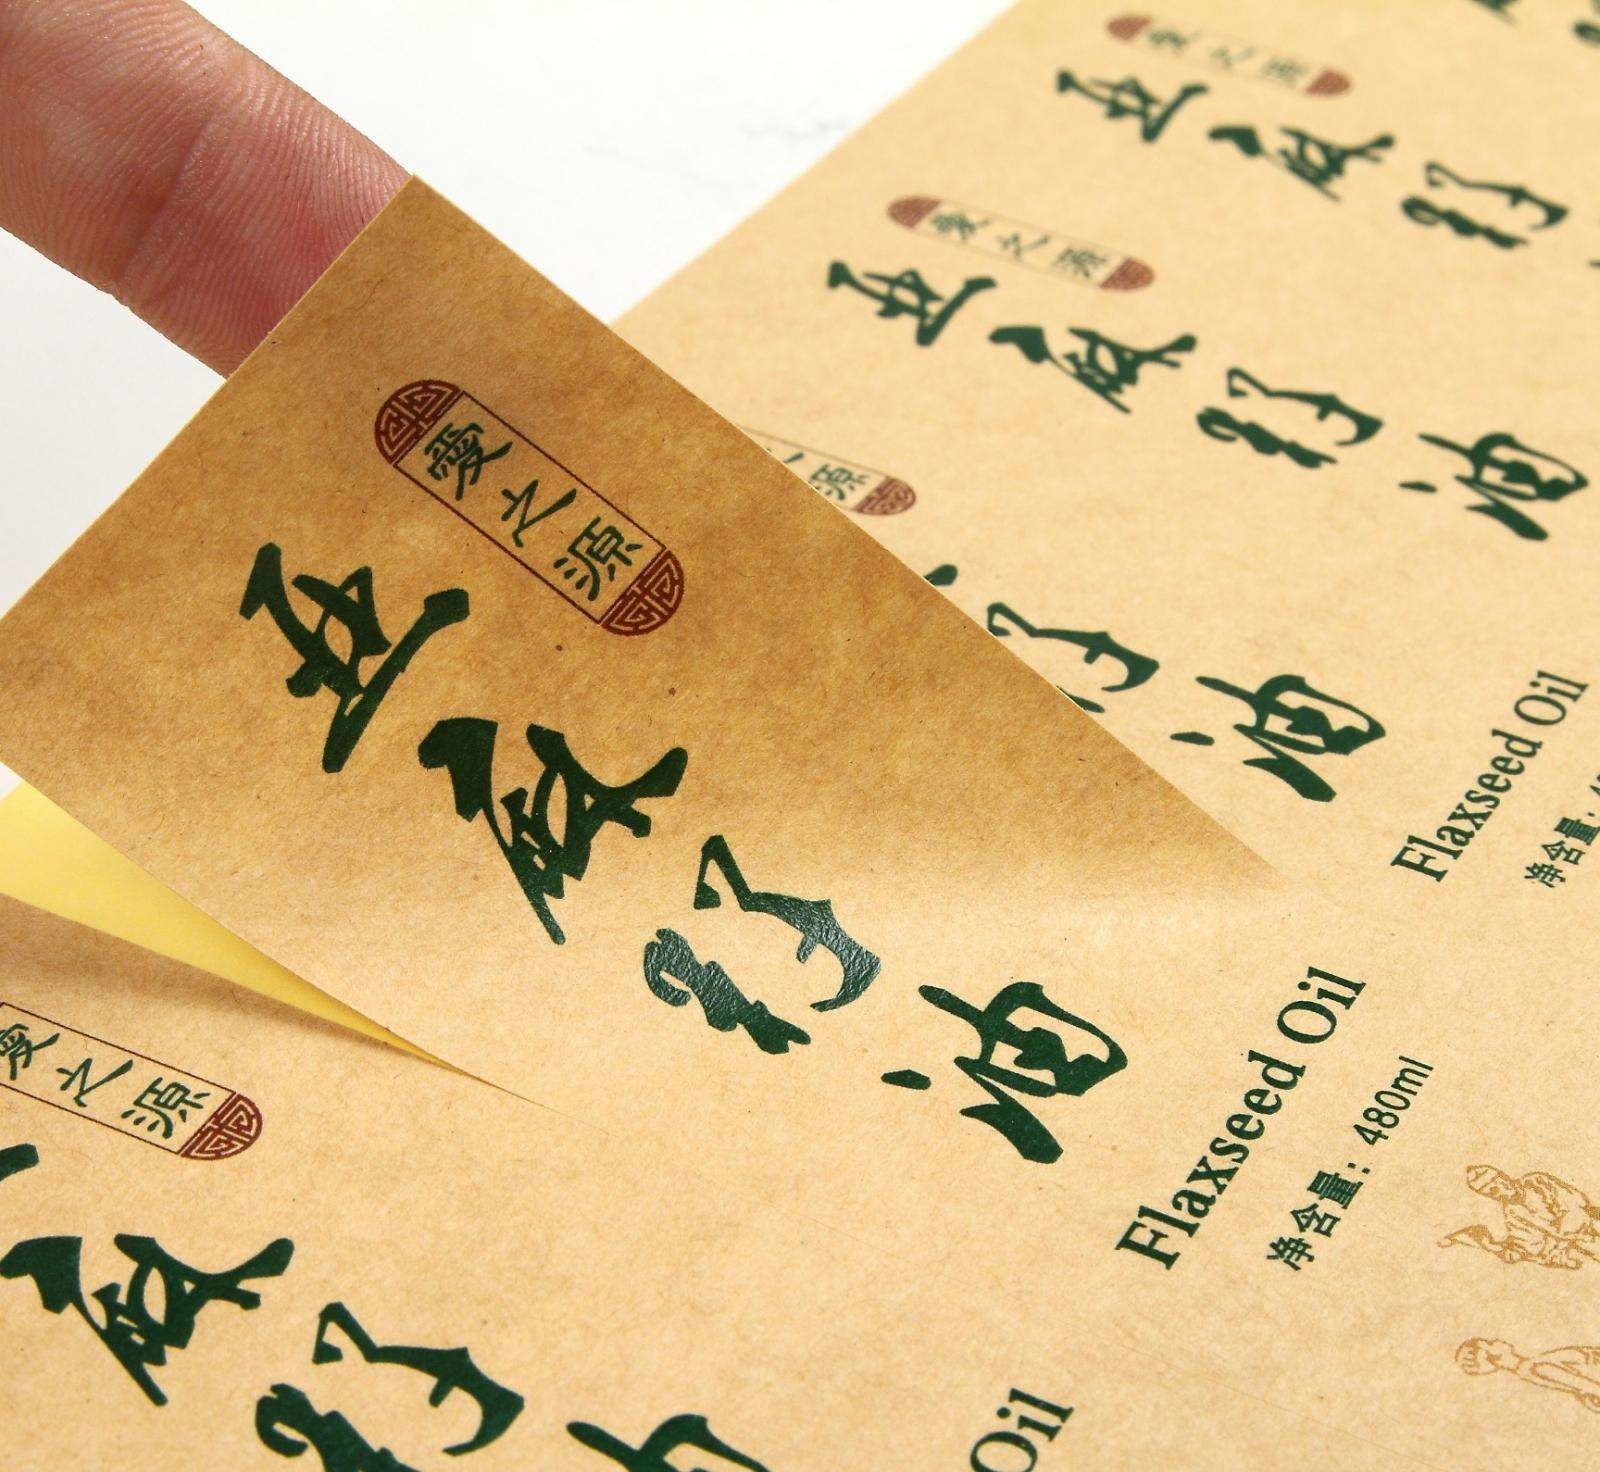 愛之源
亚麻籽
愛之源
亚麻籽油
源
籽油
Flaxseed Oil
净含量:
愛之源
亚麻籽油
Flaxseed Oil
净含量: 480ml
愛之源
麻籽
Oil